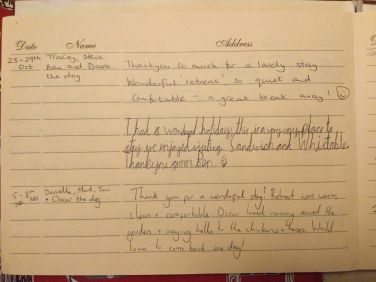 Date Name Address
25-29th Tracey, Steve
Oct Ben and Dave
the dog
Thankyou so much for a lovely stay
Wonderful 'retreat', so quiet and
Comfortable - a great break away! ☺
I had a wonderful holiday, this is a very cosy place to
stay we enjoyed visiting Sandwich and Whitstable.
Thankyou from Ben ☺
5-8th Danielle, Mark, Toni
Nov + Oscar the dog
Thank you for a wonderful stay! Retreat was warm,
clean + comfortable. Oscar loved running around the
garden + saying hello to the chickens + horses. Would
love to come back one day!